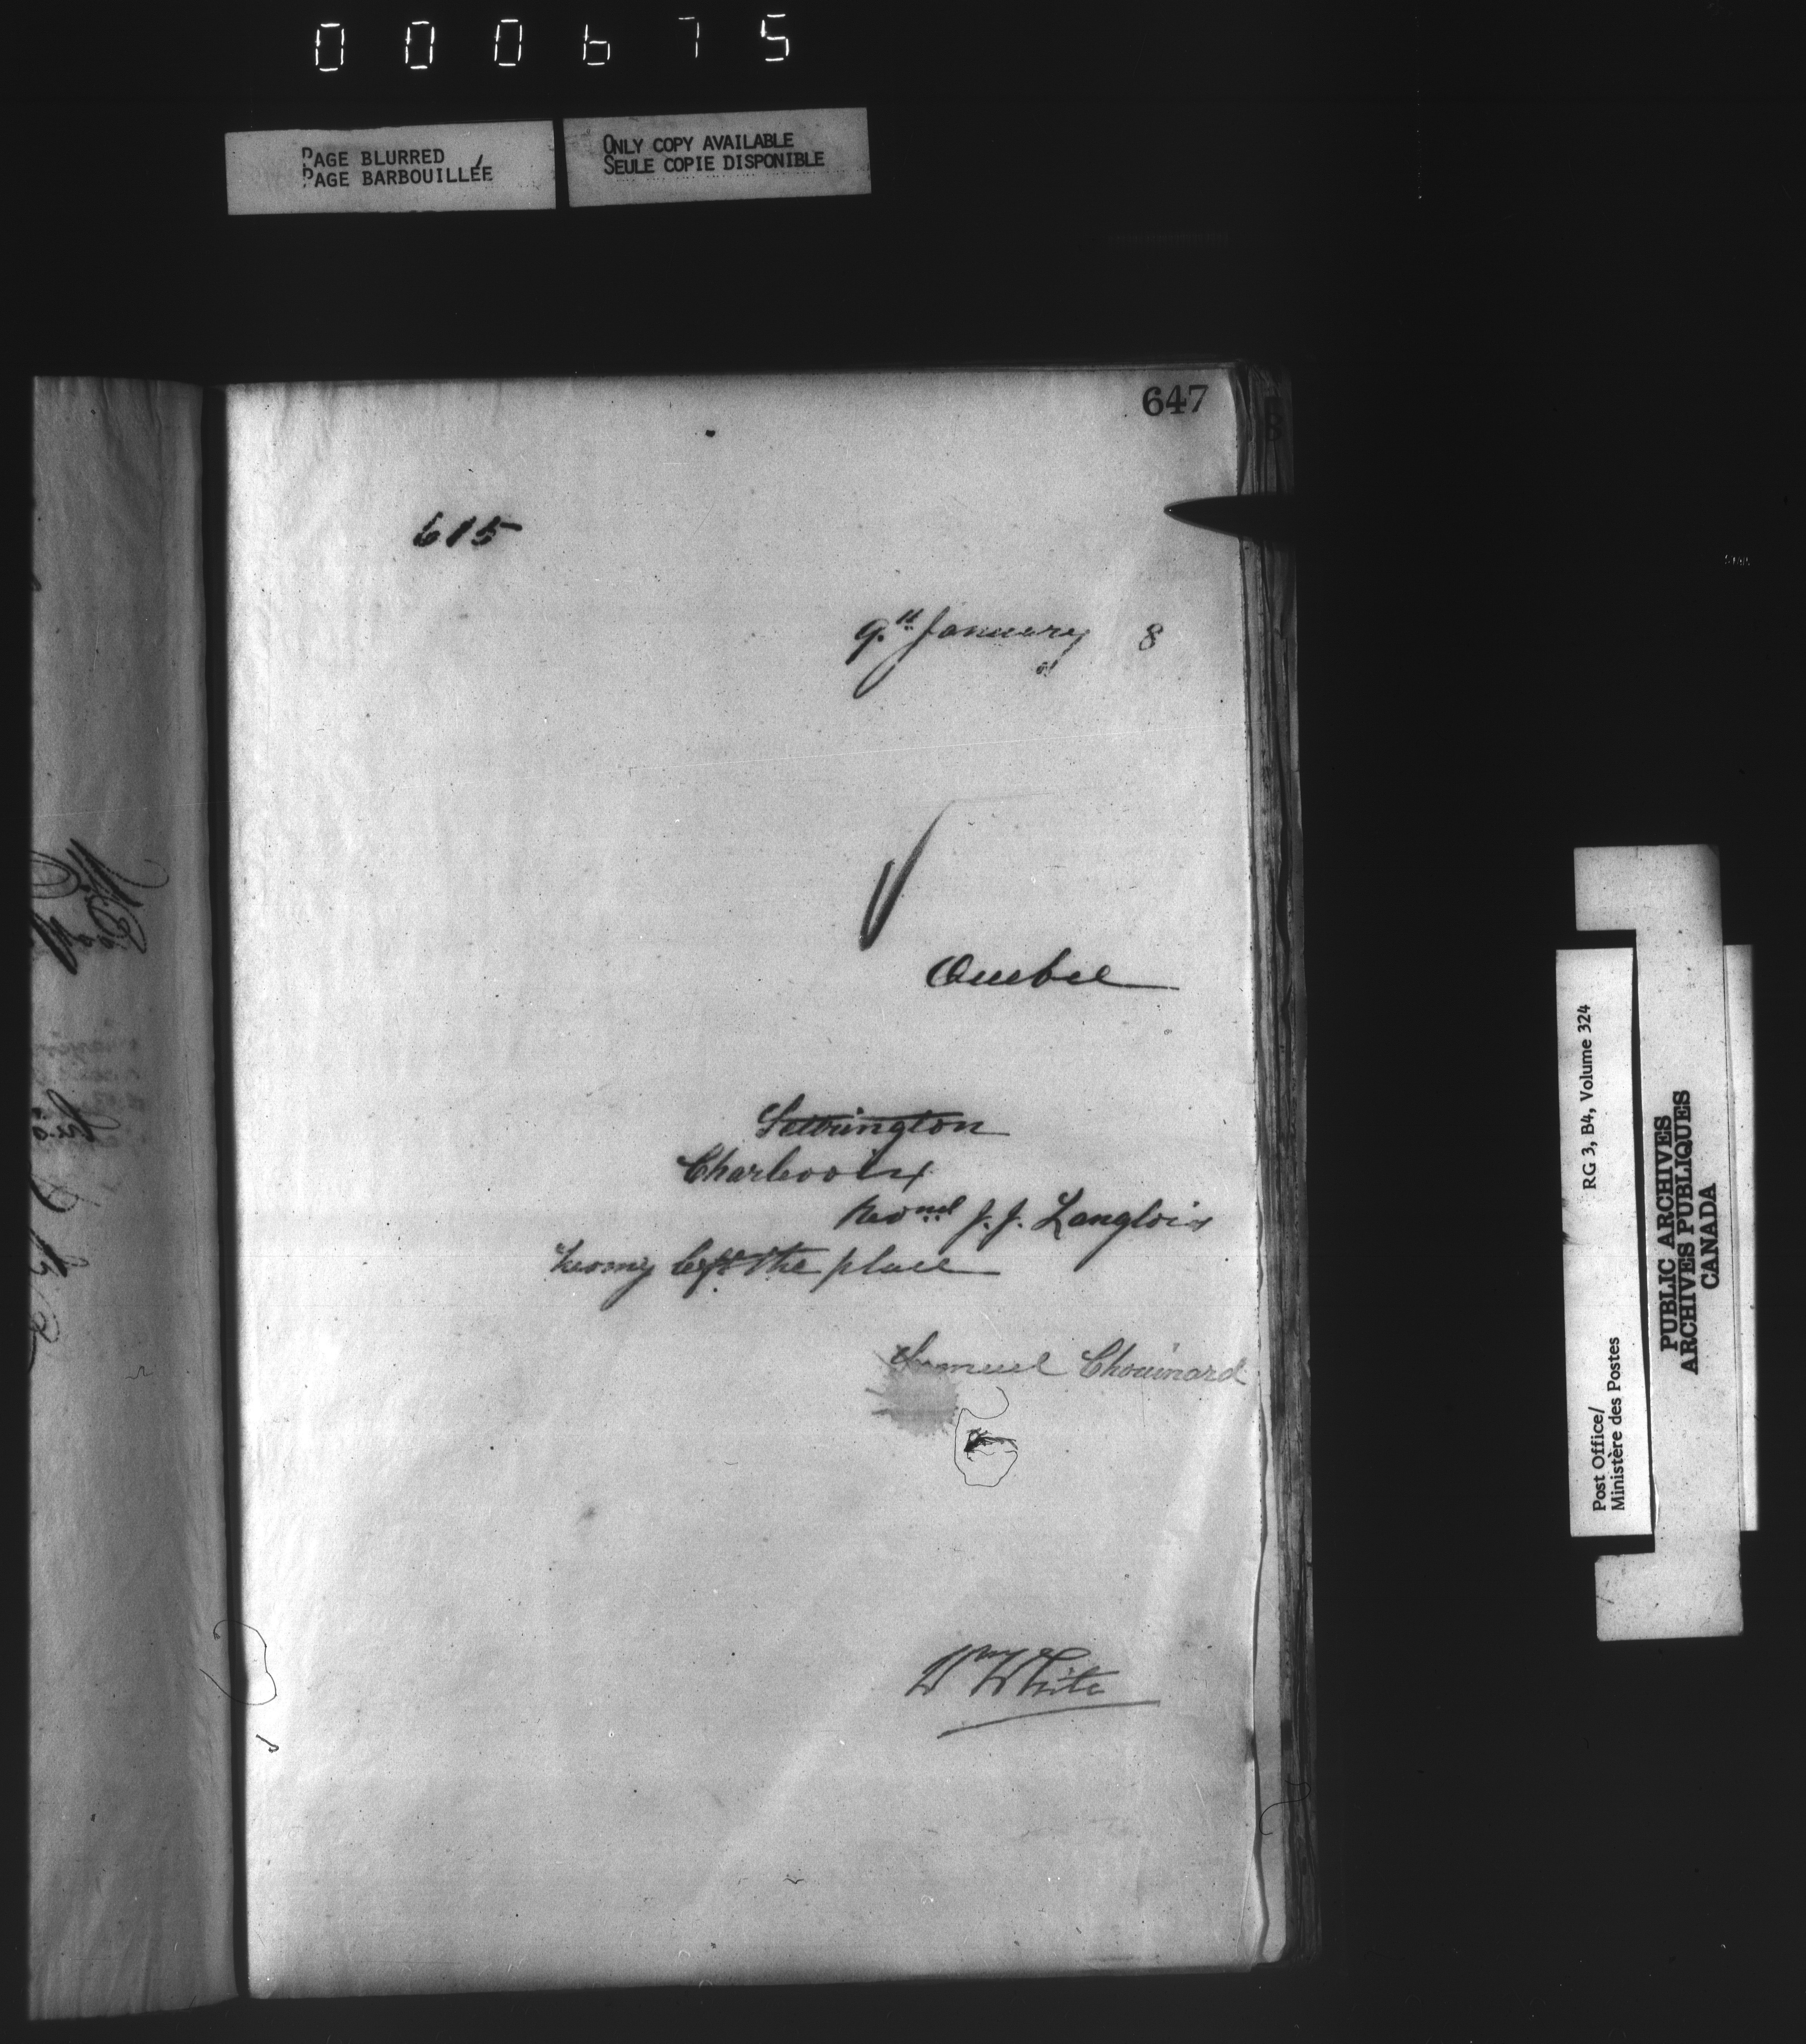 000675
PAGE BLURRED
PAGE BARBOUILLÉE
ONLY COPY AVAILABLE
SEULE COPIE DISPONIBLE
647
615
9th January 8
Quebec
Settrington
Charlevoix
Revnd J. J. Langlois
having left the place
Samuel Chouinard
Wm White
RG 3, B4, Volume 324
Post Office/
Ministère des Postes
PUBLIC ARCHIVES
ARCHIVES PUBLIQUES
CANADA